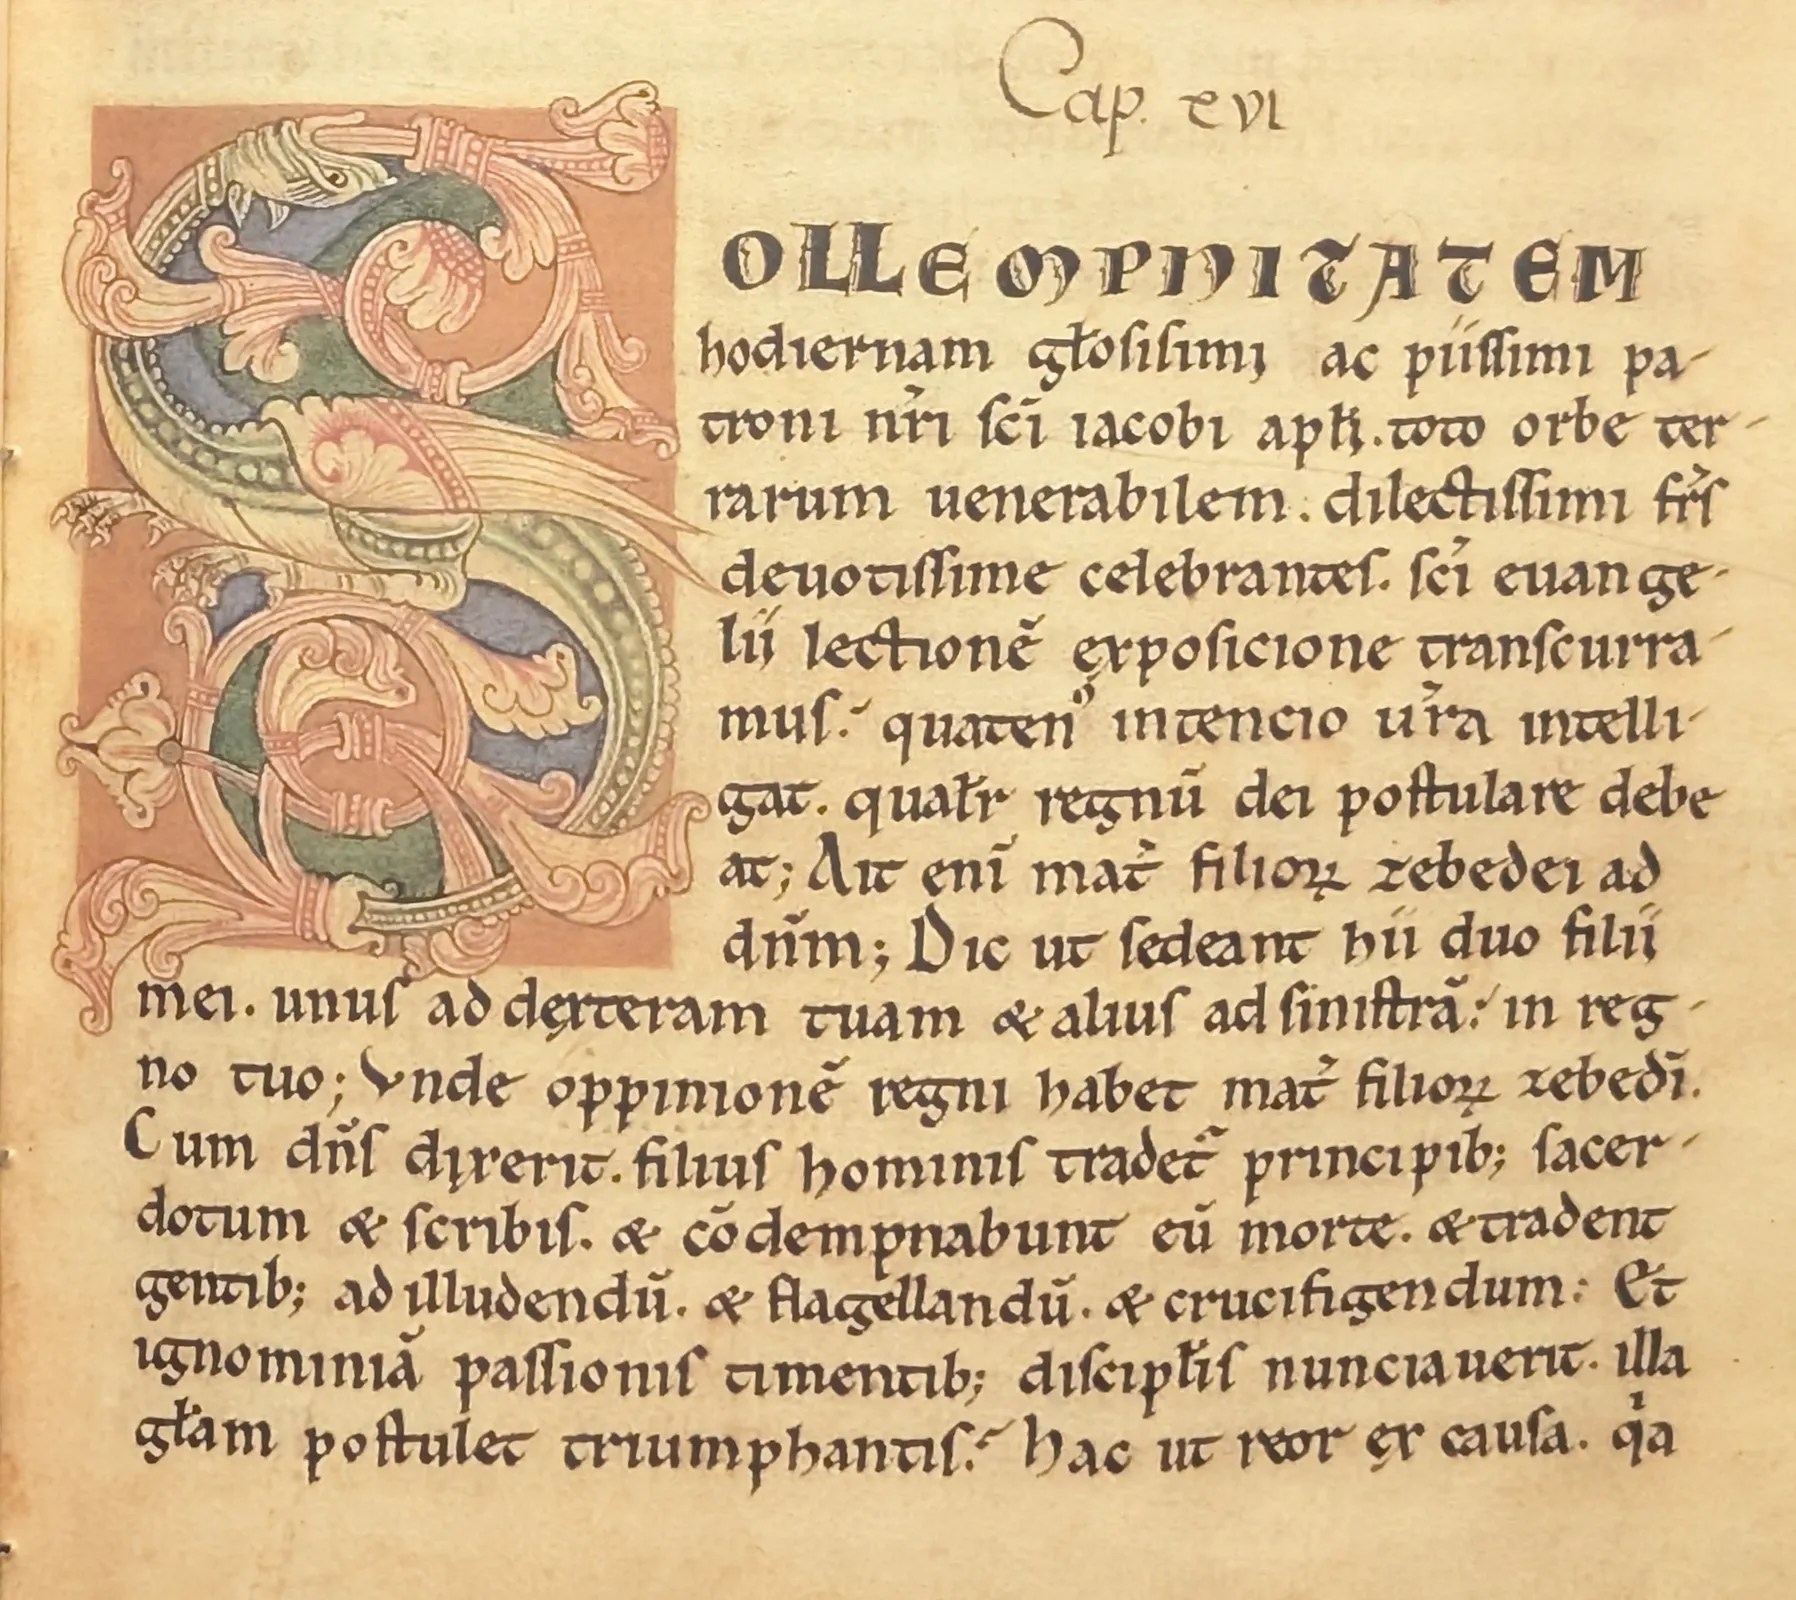 Cap. xvi
SOLLEMPNITATEM
hodiernam gł̃osisimi ac piissimi pa-
troni nr̃i sc̃i iacobi apłi. toto orbe ter-
rarum uenerabilem. dilectissimi fr̃s
deuotissime celebrantes. sc̃i euange-
lii lectionẽ exposicione transcurra-
mus. quatenꝰ intencio ur̃a intelli-
gat. qualr̃ regnũ dei postulare debe
at; Ait enĩ mat̃ filioꝝ zebedei ad
dñm; Dic ut sedeant hii duo filii
mei. unus ad dexteram tuam & alius ad sinistrã: in reg-
no tuo; Vnde oppinionẽ regni habet mat̃ filioꝝ zebedĩ.
Cum dñs dixerit. filius hominis tradet̃ principib; sacer-
dotum & scribis. & cõdempnabunt eũ morte. & tradent
gentib; ad illudendũ. & flagellandũ. & crucifigendum: Et
ignominiã passionis timentib; discipłis nunciauerit. illa
głam postulet triumphantis. Hac ut reor ex causa. qͥa